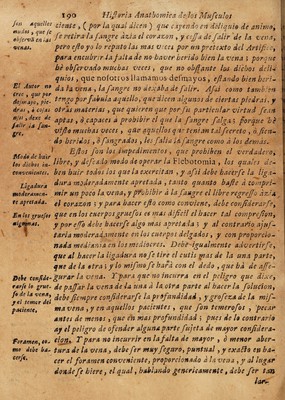 190 Historia Anathomica de los Musculos
ciente, (por la qual dicen) que cayendo en deliquio de animo,
se retira la sangre àzia el corazon, y cessa de salir de la vena,
pero esto yo lo reputo las mas veces por un pretexto del Artifice,
para encubrir la falta de no haver herido bien la vena; porque
hè observado muchas veces, que no obstante los dichos deliquios,
que nosotros llamamos desmayos, estando bien herida
la vena, la sangre no dexaba de salir. Assi como tambien
tengo por fabula aquello, que dicen algunos de ciertas piedras, y
otras materias, que quieren que por su particular virtud sean
aptas, ò capaces à prohibir el que la sangre salga; porque hè
visto muchas veces, que aquellos que tenian tal secreto, ò siendo
heridos, ò sangrados, les salia la sangre como à los demas.
Estos son los impedimentos, que prohiben el verdadero,
libre, y deseado modo de operar la Flebotomia, los quales deben
huir todos los que la exercitan, y assi debe hacerse la ligadura
moderadamente apretada, tanto quanto baste à comprimir
un poco la vena, y prohibir à la sangre el libre regresso àzia
el corazon; y para hacer esto como conviene, debe considerarse,
que en los cuerpos gruessos es mas dificil el hacer tal compression,
y por esso debe hacerse algo mas apretada; y al contrario ajustarla
moderadamente en los cuerpos delgados, y con proporcionada
mediania en los mediocres. Debe igualmente advertirse,
que al hacer la ligadura no se tire el cutis mas de la una parte,
que de la otra; y lo mismo se hará con el dedo, que hà de assegurar
la vena. Y para que no incurra en el peligro que dixe,
de passar la vena de la una à la otra parte al hacer la solucion,
debe siempre considerarse la profundidad, y groseza de la misma
vena, y en aquellos pacientes, que son temerosos, pecar
antes de menos, que en mas profundidad; pues de lo contrario
ay el peligro de ofender alguna parte sujeta de mayor consideracion.
Y para no incurrir en la falta de mayor, ò menor abertura
de la vena, debe ser muy seguro, puntual, y exacto en hacer
el foramen conveniente, proporcionado à la vena, y al lugar
donde se hiere, el qual, hablando genericamente, debe ser tan
lar-
son aquellos
nudos, que se
observã en las
venas.
El Autor no
cree, que por
desmayo, piedras,
ò cosas
tales, dexe de
salir la sangre.
Modo de huir
los dichos inconvenientes.
Ligadura
moderadamente
apretada.
En los gruessos
algo mas.
Debe considerarse
lo gruesso
de la vena,
y el temor del
paciente.
Foramen, como
debe hacerse.